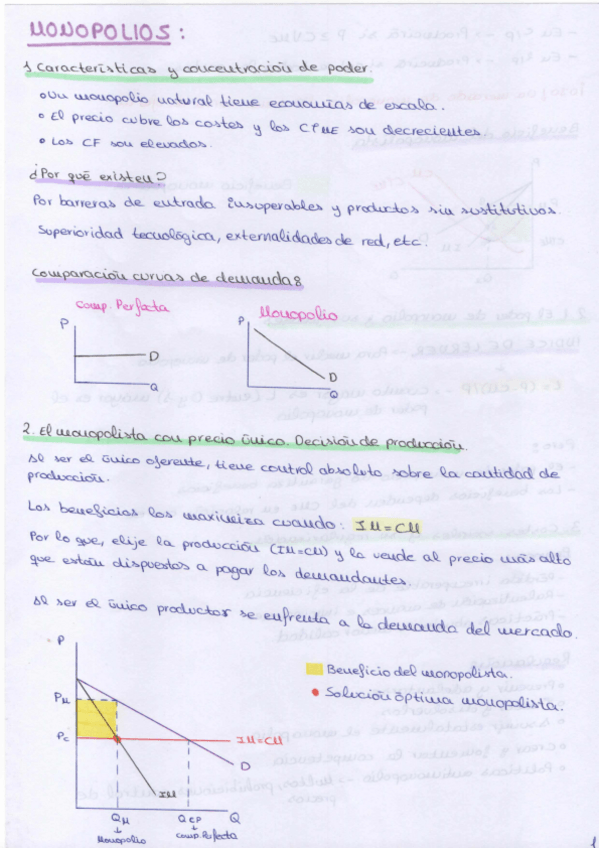 MONOPOLIOS:
1. Características y concentración de poder.
• Un monopolio natural tiene economías de escala.
• El precio cubre los costes y los CTME son decrecientes.
• Los CF son elevados.
¿Por qué existen?
Por barreras de entrada insuperables y productos sin sustitutivos.
Superioridad tecnológica, externalidades de red, etc.
Comparación curvas de demanda:
Comp. Perfecta
Monopolio
P
D
Q
P
D
Q
2. El monopolista con precio único. Decisión de producción.
Al ser el único oferente, tiene control absoluto sobre la cantidad de
producción.
Los beneficios los maximiza cuando: IM=CM
Por lo que, elije la producción (IM=CM) y la vende al precio más alto
que están dispuestos a pagar los demandantes.
Al ser el único productor se enfrenta a la demanda del mercado.
P
Beneficio del monopolista.
Solución óptima monopolista.
PM
PC
IM=CM
D
IM
QM
QCP
Q
Monopolio
Comp. Perfecta
1